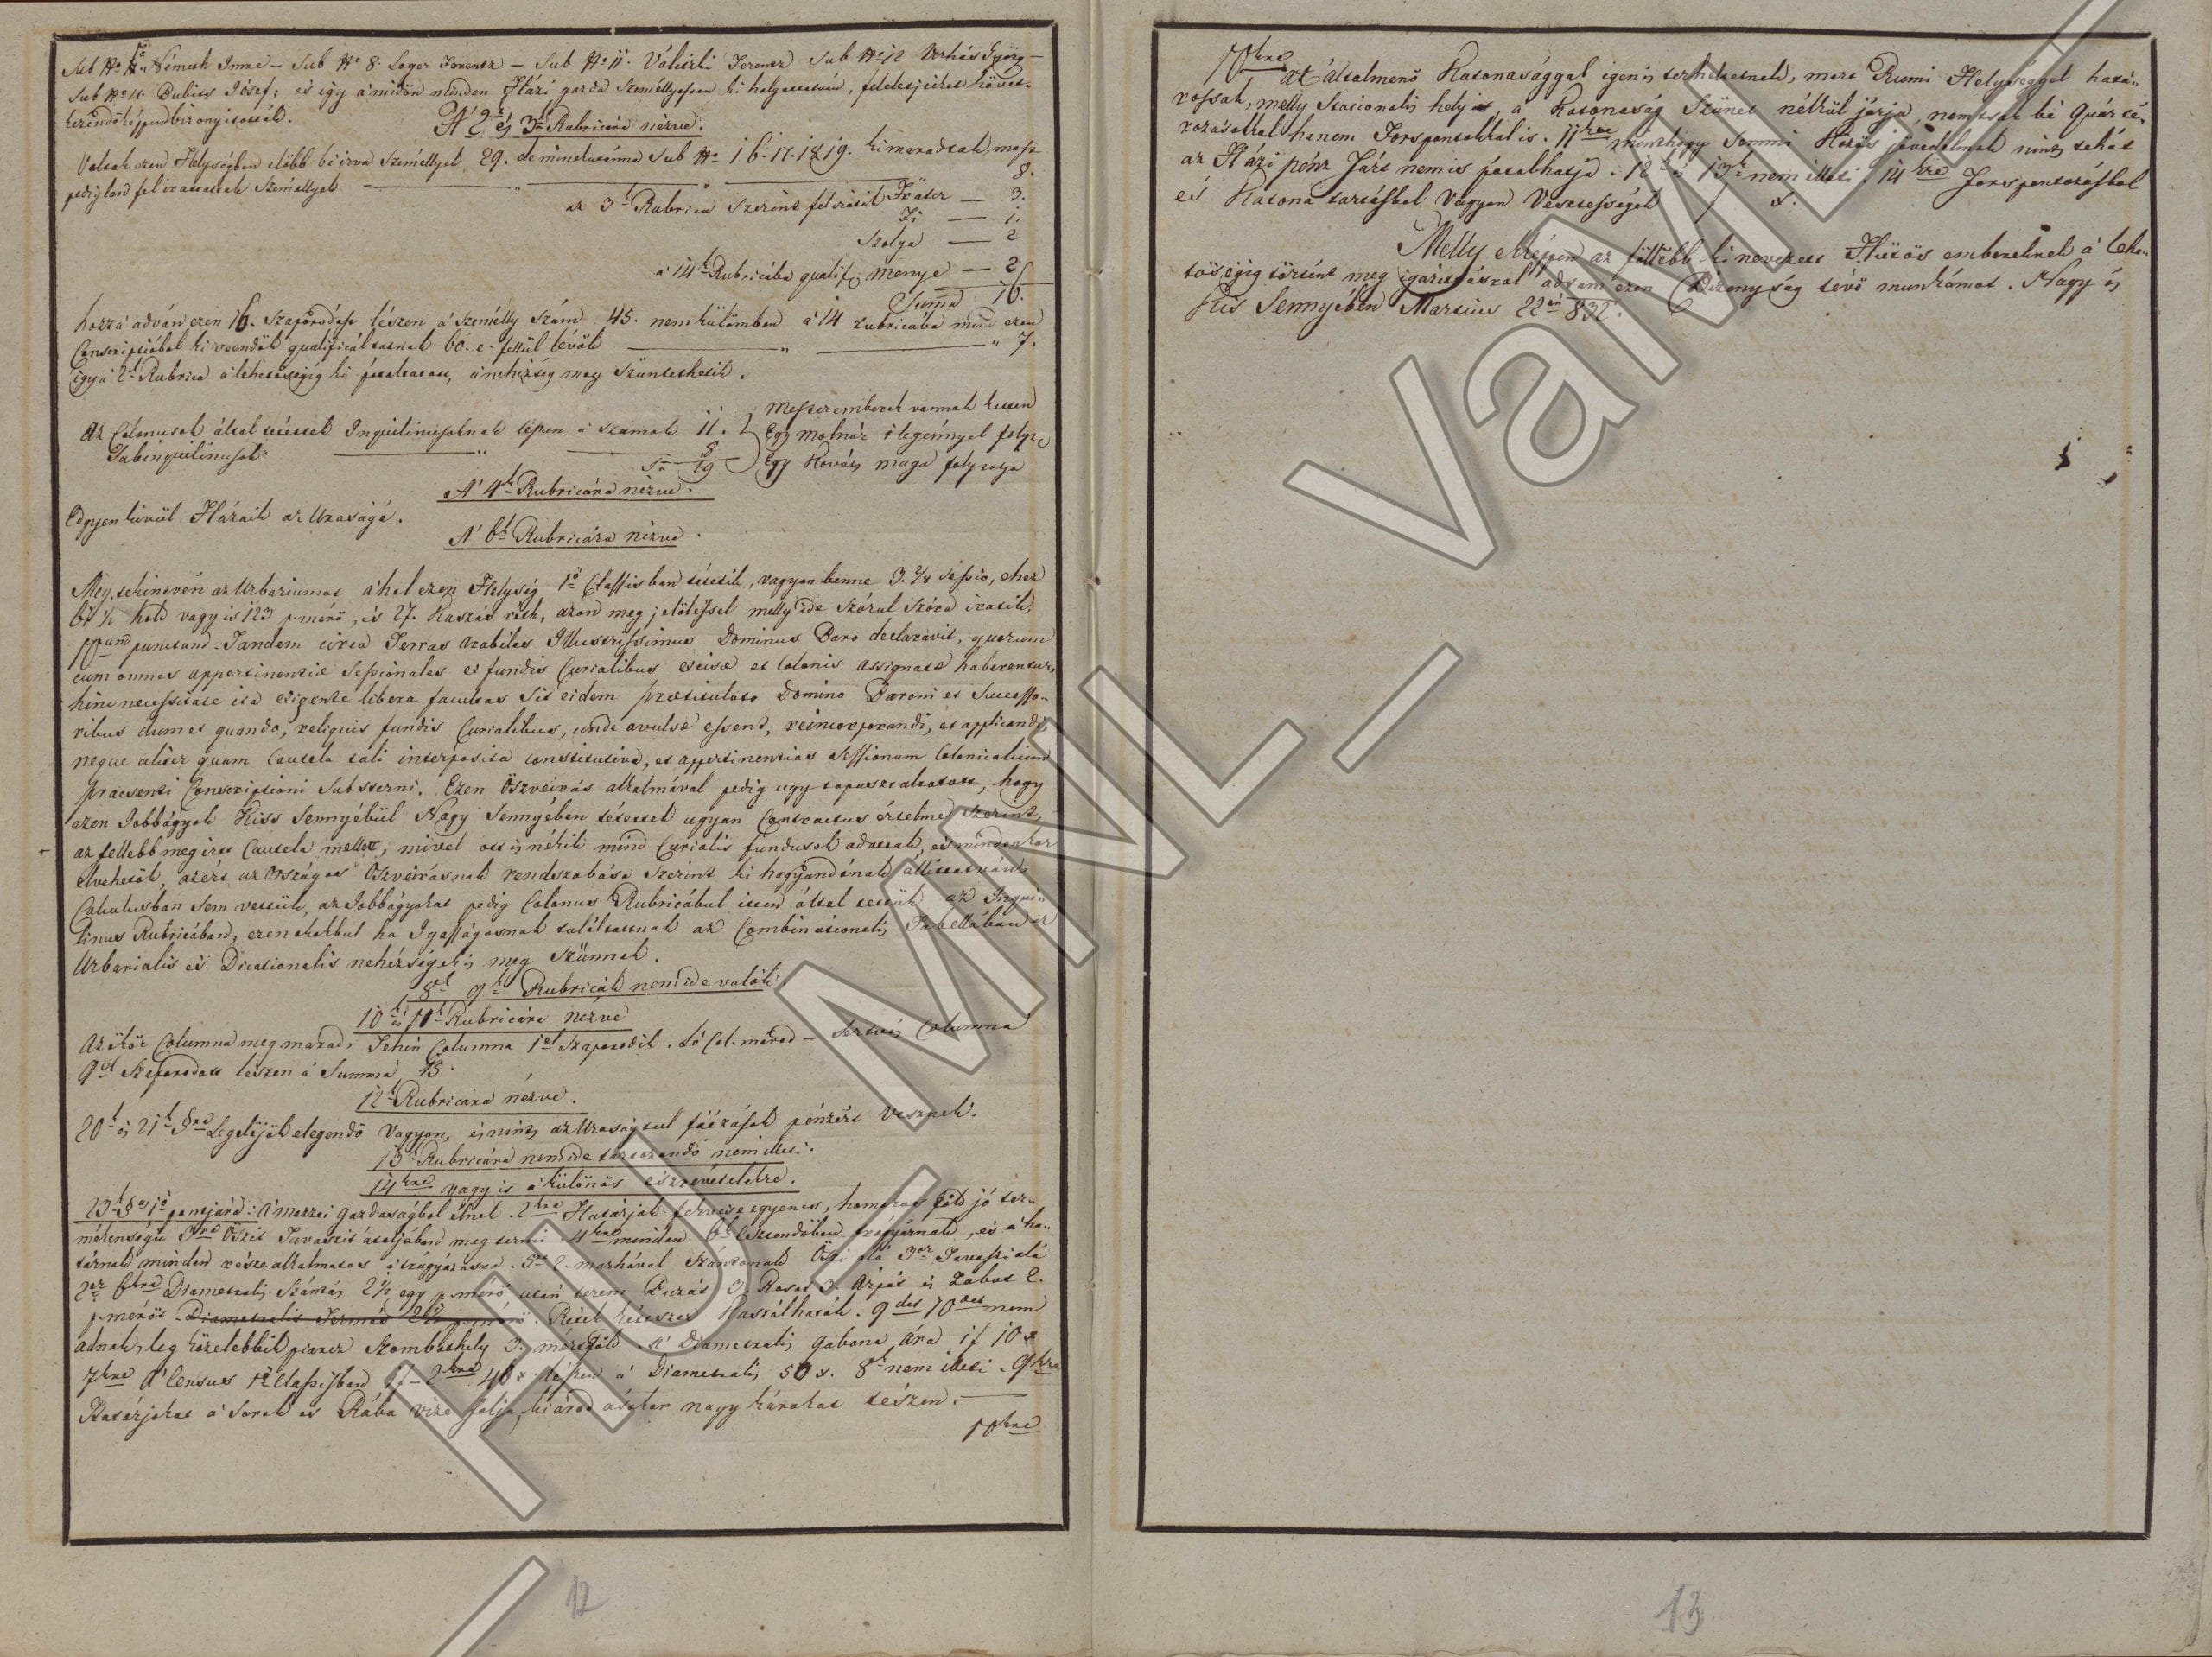 Sub No Németh Imre – Sub No 8. Loger Ferencz – Sub No 11. Váliczki Ferencz Sub No 12 Verhás György –
Sub No Bubics Jósef; és így a'midőn minden Házi gazda Személlyessen ki halgattatván, feleletjeiket követ-
kezendőképpen bizonyitották.
A' 2k és 3k Rubricára nézve.
Voltak ezen Helységben előbb béirva Személlyek 29. de minekutánna Sub No 16. 17. 18 19. kimaradtak, most
pediglend fel irattattak Személlyek 8.
az 3k Rubrica Szerint felvétetik Fráter — 3.
Fi — 1.
Szolga — 2
a' 14k Rubricába qualif. menye — 2
Suma 16.
hozzá adván ezen 16. Szaporodást lészen a' Személly Szám 45. nemkülömben a' 14 rubricába mind ezen
Conscriptióbol ki veendők qualificáltatnak 60. e. fellül lévők 7.
így a' 2k Rubrica a' lehetőségig ki pótoltatott, a' nehézség meg Szüntethetik.
Az Colonusok által tétettek Inquilinusoknak lészen a' számok 11. Mesteremberek vannak ketten
Subinquilinusok 8 Egy molnár 1 legénnyel folyt.
Sa 19 Egy Kovács maga folytatja
A' 4k Rubricára nézve.
Edgyen kivül Házaik az Uraságé.
A' 6k Rubricára nézve.
Meg tekintvén az Urbariumot a'hol ezen Helység 1ő Classisban tétetik, vagyon benne 3. 2/8 Sessio, ehez
61 1/2 hold vagyis 123 p. mérő, és 27. Kaszás rétk, azon meg jelöléssel melly ide Szórul Szóra iratik,
10um punctum. Tandem circa Terras arabiles Illustrissimus Dominus Baro declaravit, quorum
cum omnes appertinentiae Sessionales ex fundis Curialibus excisae et Colonis assignatae haberentur,
hinc necessitate ita exigente libera facultas sit eidem praetitulato Domino Baroni et Successo-
ribus dum et quando, reliquis fundis Curialibus, unde avulsae essent, reincorporandi, et applicandi,
neque aliter quam Cautela tali interposita constitutiva, et appertinentias Sessionum Colonicalium
praesenti Conscriptioni Substerni. Ezen Öszveirás alkalmával pedig ugy tapasztaltatott, hogy
ezen Jobbágyok Kiss Sennyébül Nagy Sennyében tétettek ugyan Contractus értelme Szerint,
az fellebb meg irt Cautela mellett, mivel ott is nékik mind Curialis fundusok adattak, és mindenkor
elvehetők, azért az Országos Öszveirásnak rendszabása Szerint ki hagyandónak állittatván
Calculusban Sem vettük, az Jobbágyokat pedig Colonus Rubricábul ismét által tettük az Inqui-
linus Rubricában, ezen okokbul ha Igasságosnak találtatnak az Combinationalis Tabellában az
Urbarialis és Dicationalis nehézségek is meg Szünnek.
8k 9k Rubricák nem ide valók
10k és 11k Rubricára nézve
Az ökör Columna meg marad, Tehén Columna 1el Szaporodik. Ló Col. marad – Sertvés Columna
9el Szaporodott lészen a' Summa 15.
12k Rubricára nézve.
20k és 21k §ra Legelőjök elegendő vagyon, és nincs az Uraságtul faézások pénzért vesznek.
13k Rubricára nem ide tartozandó nem illeti.
14kre vagy is a' különös észrevételekre.
23k § 1ő pontjára: A' mezzei gazdaságbol élnek. 2kra Határjok fekvése egyenes, homokos föld jó ter-
ménységü 3ra Őszit Tavaszit átaljában meg termi 4kre minden 6k esztendőben trágyáznak, és a' ha-
tárnak minden része alkalmatos a' trágyázásra. 5re 2. marhával Szántanak Őszi alá 3or Tavaszi alá
2or 6kra Diametralis Számás 2 1/2 egy p. mérő után terem Buzát 3. Rozsot 3. Árpát és Zabot 2.
p. mérőt. Diametralis Termés p. mérő. Rétek kétszer Kaszálhatók. 9det 10det nem
adnak, leg közelebbik piartz Szombathely 3. mértföld. A' Diametralis gabona Ára 1f 10x
7kre A' Census 1ő Classisban 1f – 2kra 40x lészen a' Diametralis 50x. 8k nem illeti. 9kre
Határjokat a' Sorok és Rába vize folja, ki áradásakor nagy károkat tészen.
10kre
10kre
at' általmenő Katonasággal igen is terheltetnek, mert Rumi Helységgel hatá-
rossak, melly Stacionalis hely is, a' Katonaság Szünet nélkül járja, nem csak bé Quárté-
rozásokkal hanem Forspontokkal is. 11kre minthogy Semmi Közös jövedelmek nincs tehát
az Házi pénz Járt nem is pótolhatja. 12k és 13k nem illeti. 14kre Forspontozásbol
és Katona tartásbol Vagyon Veszteségek
Melly eképpen az föllebb ki nevezett Hütös embereknek a' lehe-
tőségig történt meg igazitásrol adtam ezen Bizonyság tévő munkámat. Nagy és
Kis Sennyében Martius 22én 832.
12
13
HU_MNL_VaML_I